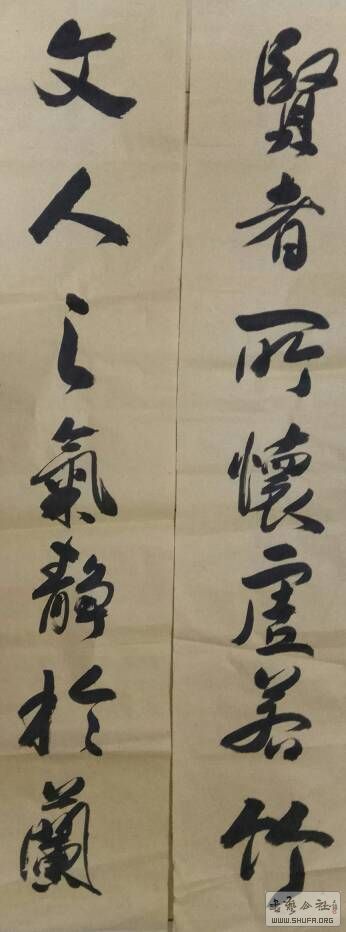 賢者所懷虛若竹
文人之氣静於蘭
書藝公社
www.SHUFA.ORG